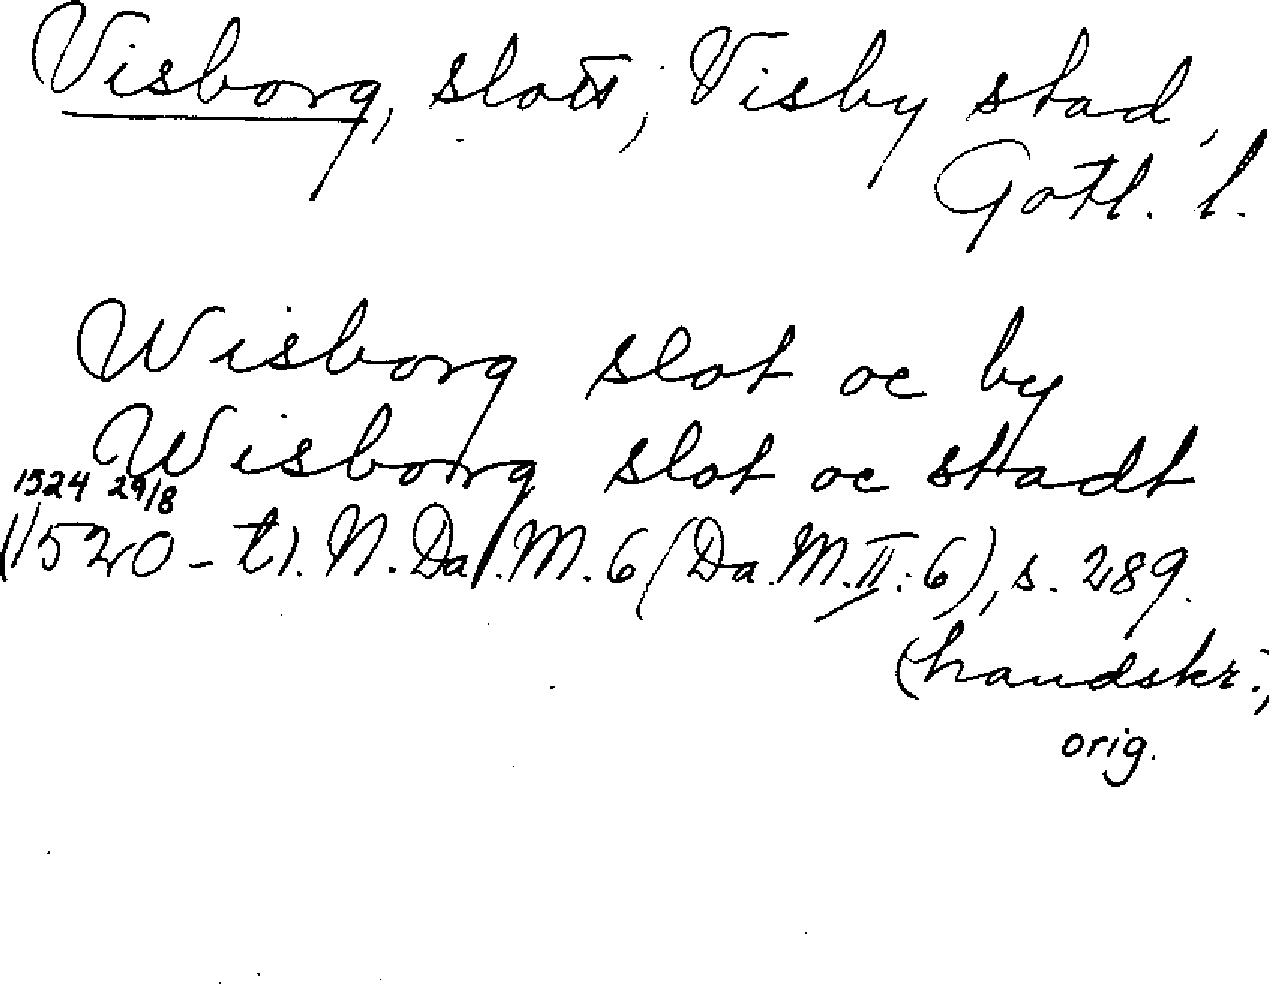 Visborg, slott, Visby stad,
Gotl. l.
Wisborg slot oc by
Wisborg slot oc stadt
1524 29/8
(1520-t). N. Da. M. 6 (Da. M. II: 6), s. 289.
(handskr.,
orig.